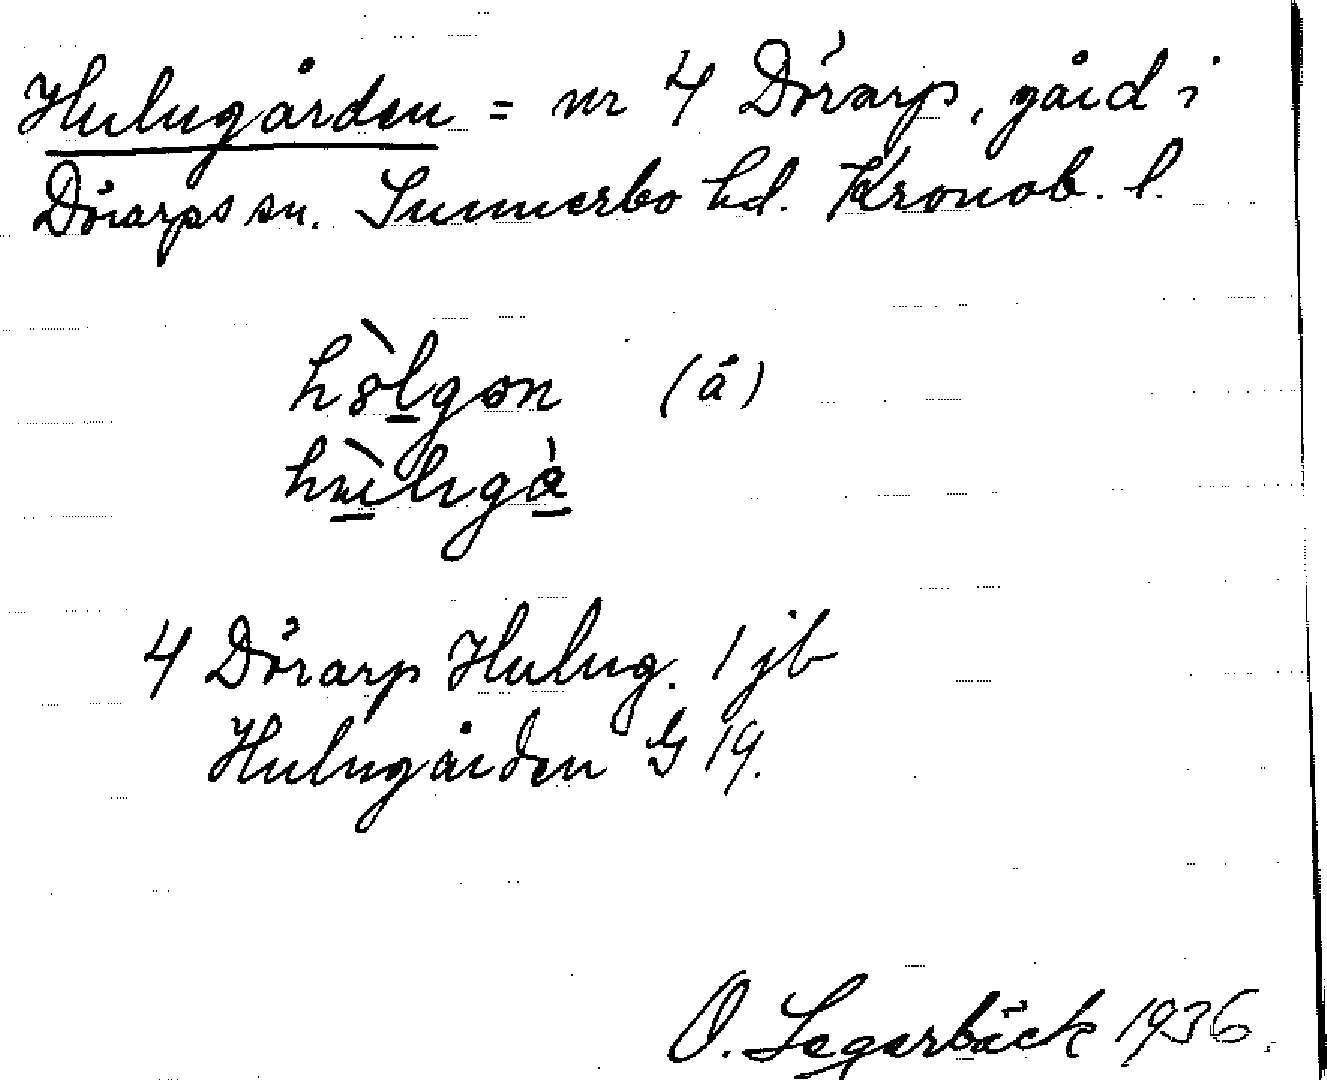 Hulugården = nr 4 Dörarp, gård i
Dörarps sn. Sunnerbo hd. Kronob. l.
(å)
4 Dörarp Hulug. 1 jb
Hulugården G 19.
O. Segerbäck 1936.